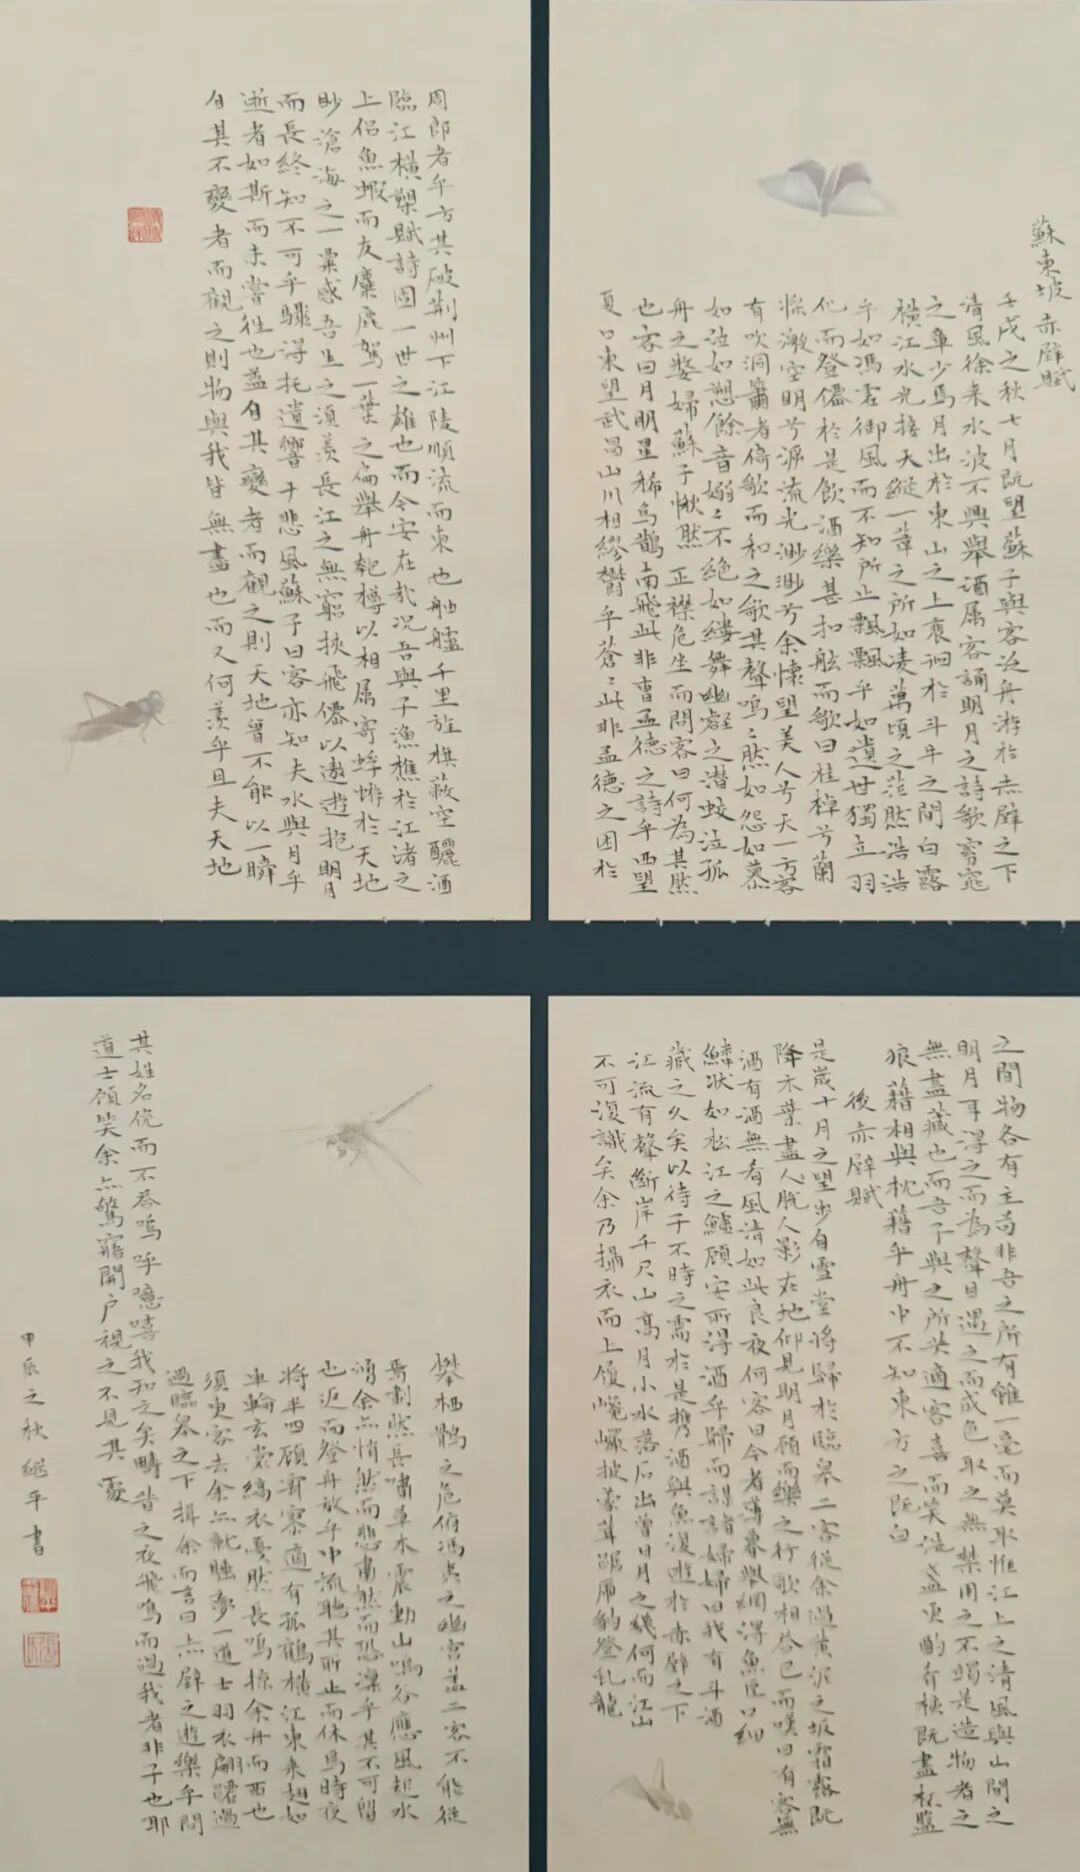 蘇東坡 赤壁賦
壬戌之秋七月既望蘇子與客泛舟游於赤壁之下
清風徐来水波不興舉酒属客誦明月之詩歌窈窕
之章少焉月出於東山之上裵徊於斗牛之間白露
橫江水光接天縱一葦之所如凌萬頃之茫然浩浩
乎如馮虚御風而不知所止飄飄乎如遺世獨立羽
化而登僊於是飲酒樂甚扣舷而歌曰桂棹兮蘭
槳激空明兮泝流光渺渺兮余懷望美人兮天一方客
有吹洞簫者倚歌而和之歌其聲嗚〻然如怨如慕
如泣如愬餘音嫋〻不絶如縷舞幽壑之潜蛟泣孤
舟之嫠婦蘇子愀然正襟危坐而問客曰何為其然
也客曰月明星稀烏鵲南飛此非曹孟德之詩乎西望
夏口東望武昌山川相繆鬱乎蒼〻此非孟德之困於
周郎者乎方其破荆州下江陵順流而東也舳艫千里旌旗蔽空釃酒
臨江橫槊賦詩固一世之雄也而今安在哉况吾與子漁樵於江渚之
上侣魚蝦而友麋鹿駕一葉之扁舉舟匏樽以相属寄蜉蝣於天地
眇滄海之一粟感吾生之須羨長江之無窮挾飛僊以遨遊抱明月
而長終知不可乎驟得托遺響于悲風蘇子曰客亦知夫水與月乎
逝者如斯而未嘗往也盖自其變者而觀之則天地曾不能以一瞬
自其不變者而觀之則物與我皆無盡也而又何羨乎且夫天地
之間物各有主苟非吾之所有雖一毫而莫取惟江上之清風與山間之
明月耳得之而為聲目遇之而成色取之無禁用之不竭是造物者之
無盡藏也而吾子與之所共適客喜而笑洗盞更酌肴核既盡杯盤
狼藉相與枕藉乎舟中不知東方之既白
後赤壁賦
是歲十月之望步自雪堂將歸於臨皋二客從余過黃泥之坂霜露既
降木葉盡脱人影在地仰見明月顧而樂之行歌相答已而嘆曰有客無
酒有酒無肴風清如此良夜何客曰今者薄暮舉網得魚巨口細
鱗狀如松江之鱸顧安所得酒乎歸而謀諸婦婦曰我有斗酒
藏之久矣以待子不時之需於是携酒與魚復遊於赤壁之下
江流有聲斷岸千尺山高月小水落石出曾日月之幾何而江山
不可復識矣余乃攝衣而上履巉巖披蒙茸踞虎豹登虬龍
攀栖鶻之危俯馮夷之幽宫盖二客不能從
焉劃然長嘯草木震動山鳴谷應風起水
涌余亦悄然而悲肅然而恐凛乎其不可留
也返而登舟放乎中流聽其所止而休焉時夜
將半四顧寂寥適有孤鶴橫江東来翅如
車輪玄裳縞衣戛然長鳴掠余舟而西也
須臾客去余亦就睡夢一道士羽衣翩躚過
過臨皋之下揖余而言曰赤壁之遊樂乎問
其姓名俛而不荅嗚呼噫嘻我知之矣疇昔之夜飛鳴而過我者非子也耶
道士顧笑余亦驚寤開户視之不見其處
甲辰之秋 継平書